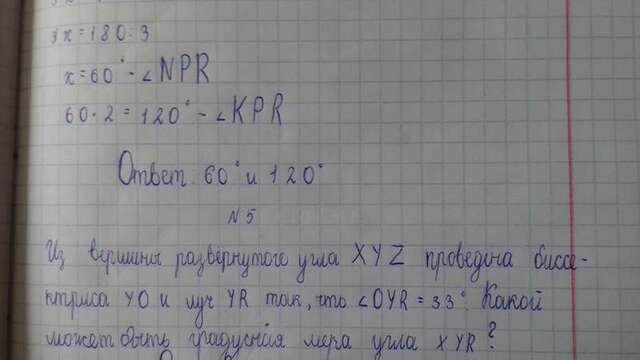 3x = 180:3
x = 60° - ∠NPR
60·2 = 120° - ∠KPR
Ответ: 60° и 120°
№5
Из вершины развёрнутого угла XYZ проведена биссе-
ктриса YO и луч YR так, что ∠OYR = 33°. Какой
может быть градусная мера угла XYR?